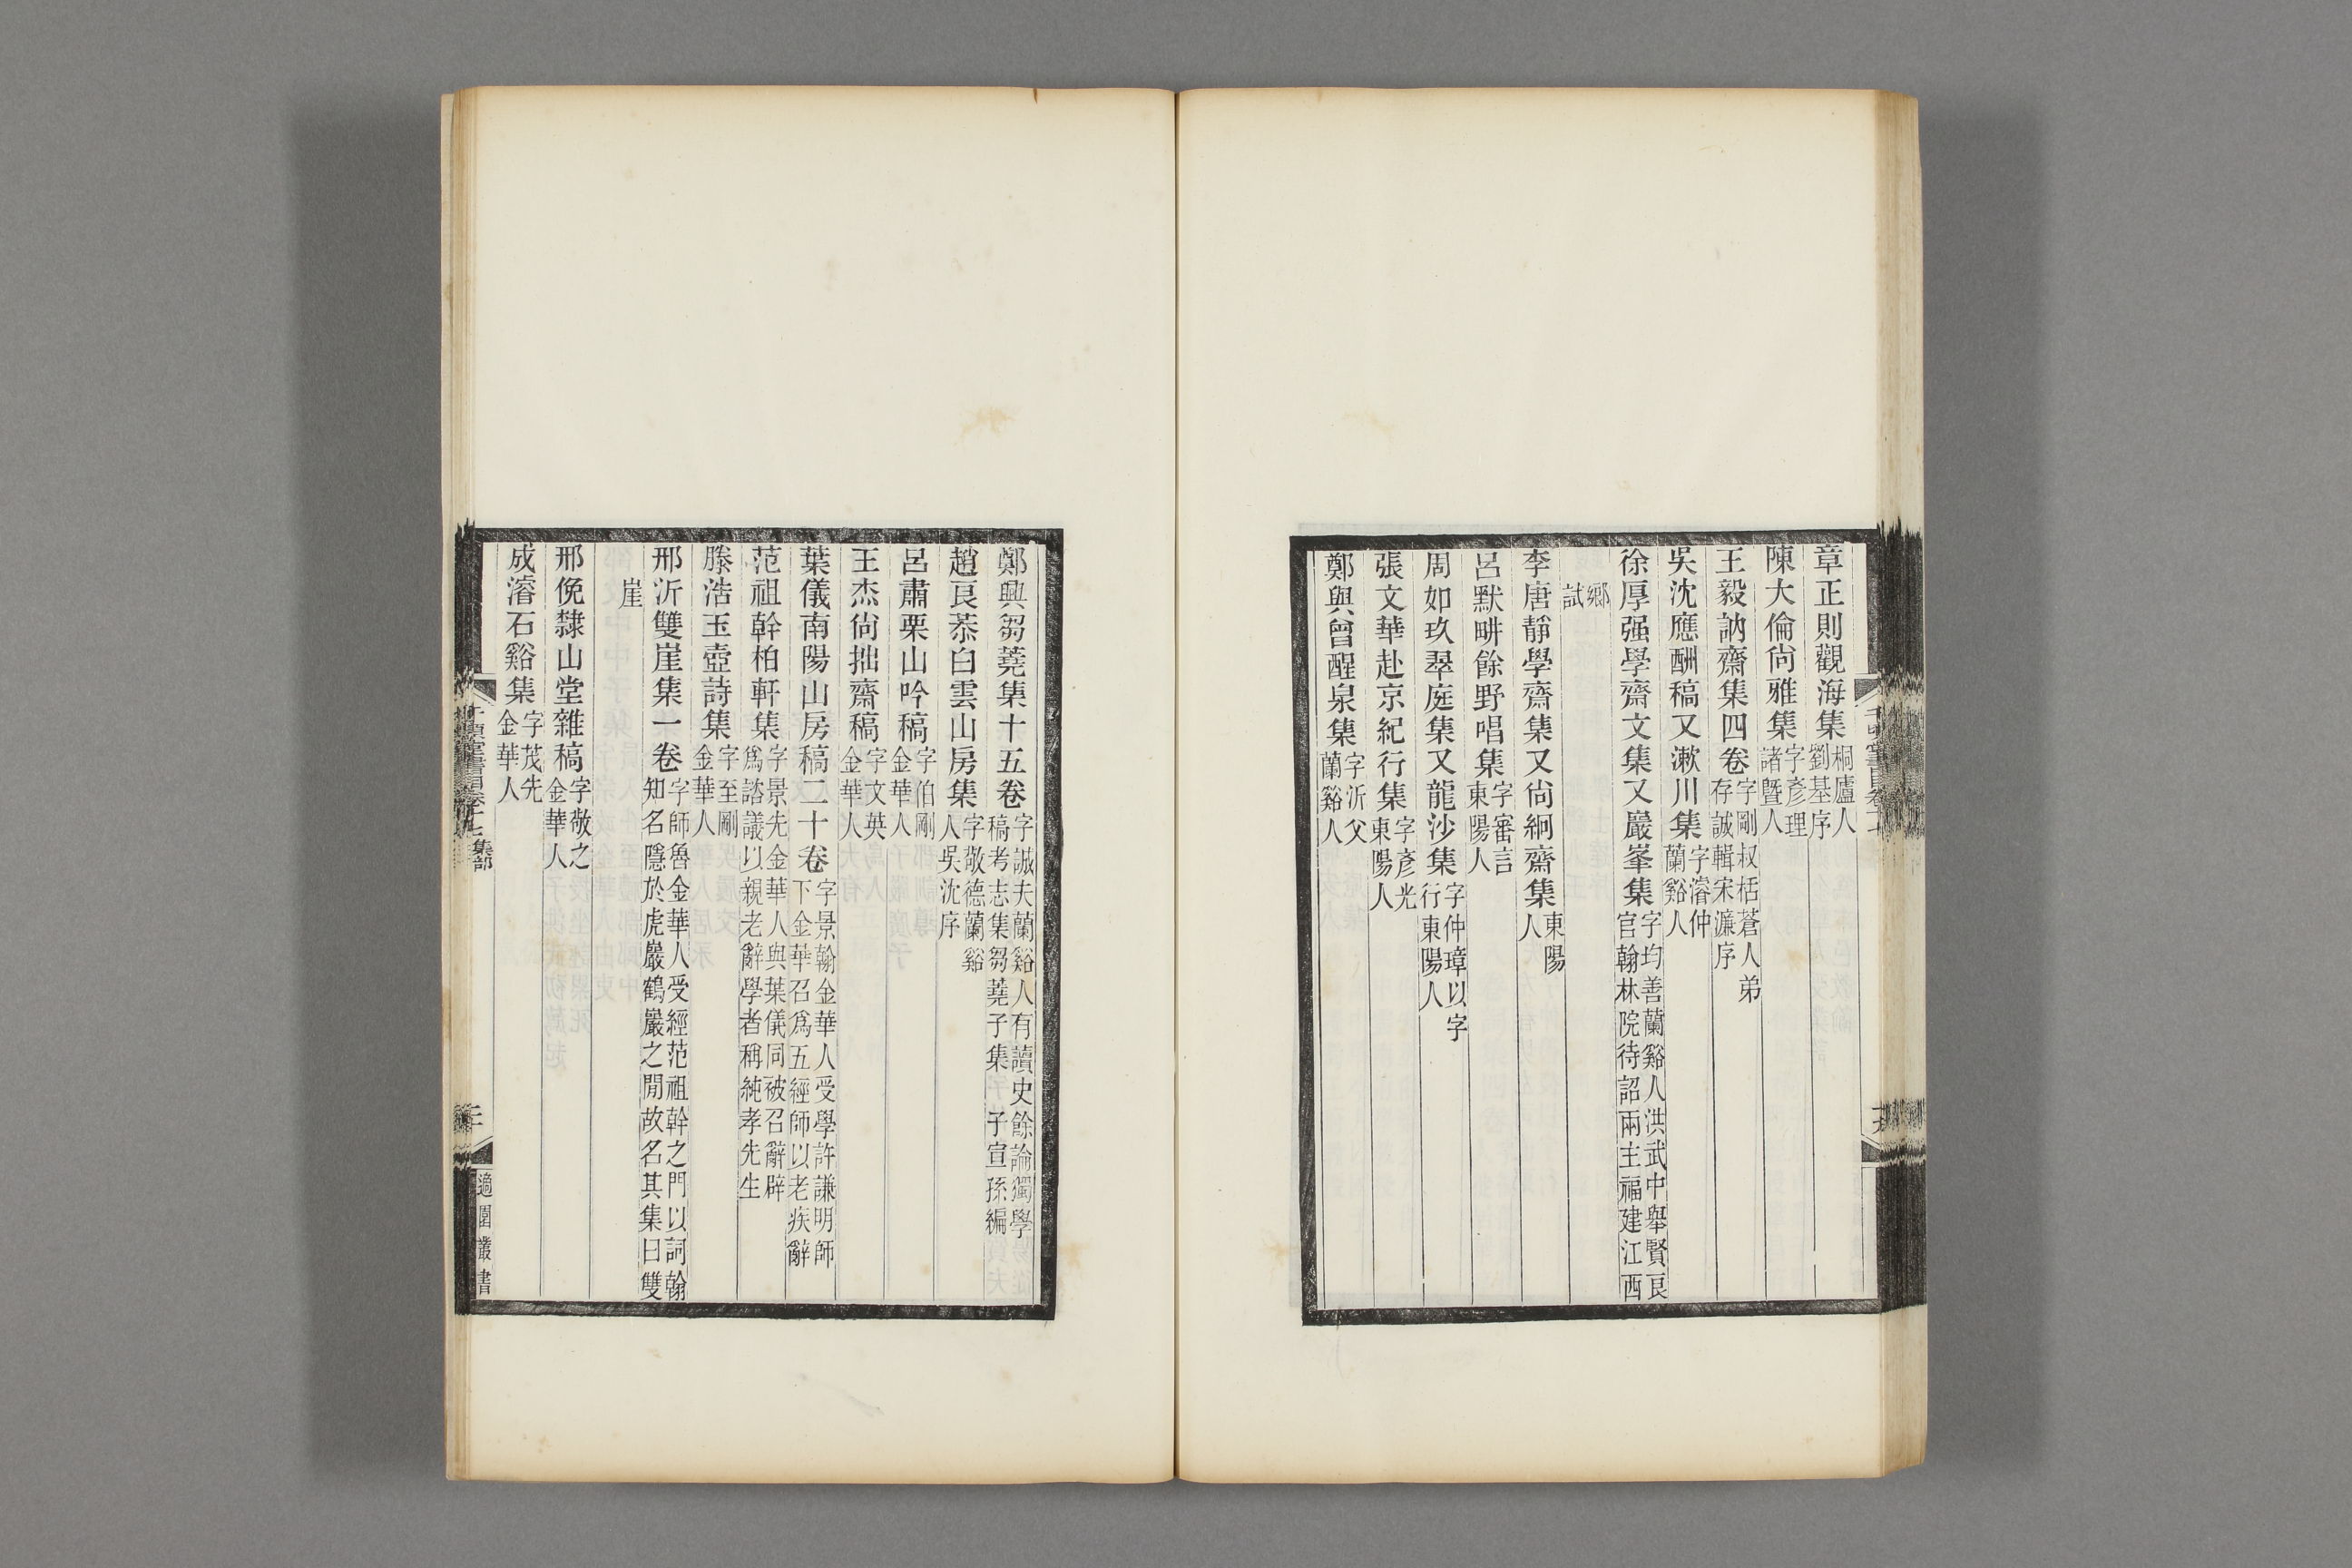 章正則觀海集桐廬人劉基序
陳大倫尙雅集字彥理諸曁人
王毅訥齋集四卷字剛叔栝蒼人弟存誠輯宋濂序
吳沈應酬稿又漱川集字濬仲蘭谿人
徐厚强學齋文集又巖峯集字均善蘭谿人洪武中舉賢良官翰林院待詔兩主福建江西
鄉試
李唐靜學齋集又尙絅齋集東陽人
呂默畊餘野唱集字審言東陽人
周如玖翠庭集又龍沙集字仲璋以字行東陽人
張文華赴京紀行集字彥光東陽人
鄭與曾醒泉集字沂父蘭谿人
鄭興芻蕘集十五卷字誠夫蘭谿人有讀史餘論獨學稿考志集芻蕘子集 子宣孫編
趙良恭白雲山房集字敬德蘭谿人吳沈序
呂肅栗山吟稿字伯剛金華人
王杰尙拙齋稿字文英金華人
葉儀南陽山房稿二十卷字景翰金華人受學許謙明師下金華召爲五經師以老疾辭
范祖幹柏軒集字景先金華人與葉儀同被召辭辟爲諮議以親老辭學者稱純孝先生
滕浩玉壺詩集字至剛金華人
邢沂雙崖集一卷字師魯金華人受經范祖幹之門以詞翰知名隱於虎巖鶴巖之閒故名其集曰雙
崖
邢俛隸山堂雜稿字敬之金華人
成濬石谿集字茂先金華人
千頃堂書目卷十七集部
適園叢書